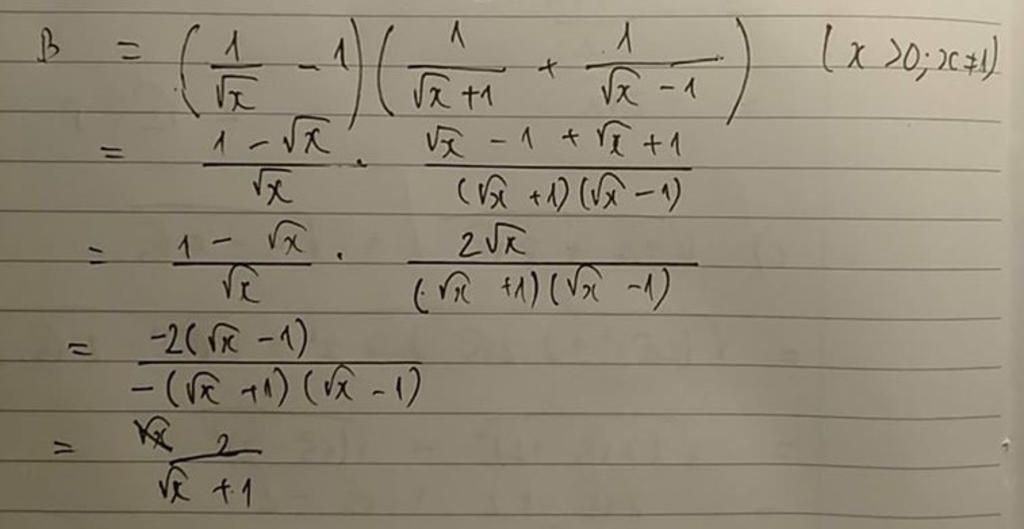 B = (1/√x - 1)(1/(√x + 1) + 1/(√x - 1)) (x > 0; x ≠ 1)
= (1 - √x)/√x · (√x - 1 + √x + 1)/((√x + 1)(√x - 1))
= (1 - √x)/√x · 2√x/((√x + 1)(√x - 1))
= -2(√x - 1)/(-(√x + 1)(√x - 1))
= 2/(√x + 1)